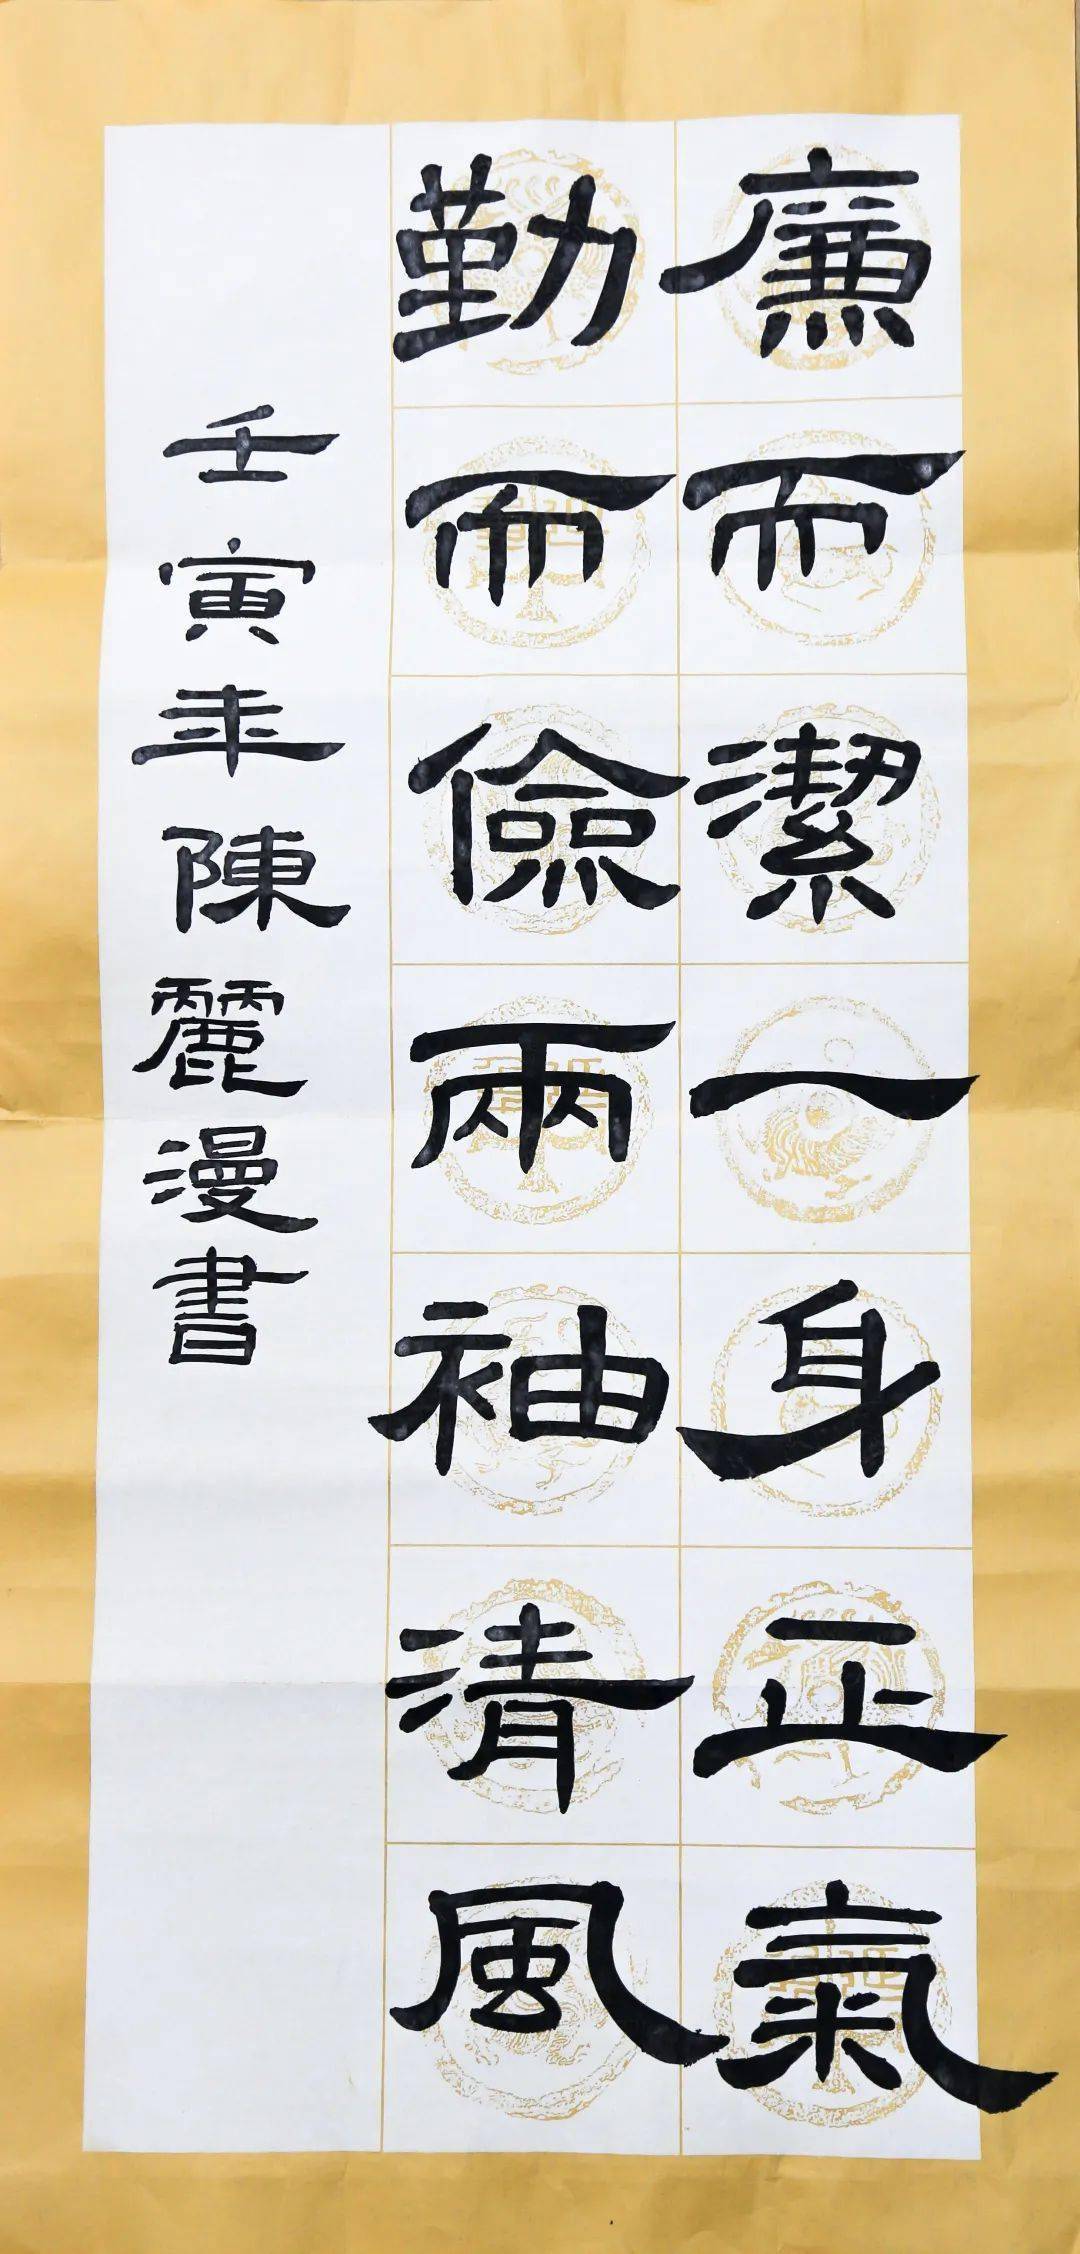 廉而潔一身正氣
勤而儉兩袖清風
壬寅年陳麗漫書